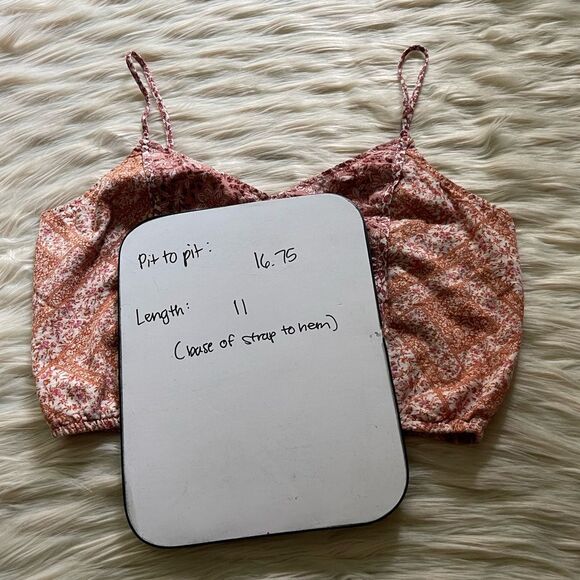 Pit to pit: 16.75
Length: 11
(base of strap to hem)